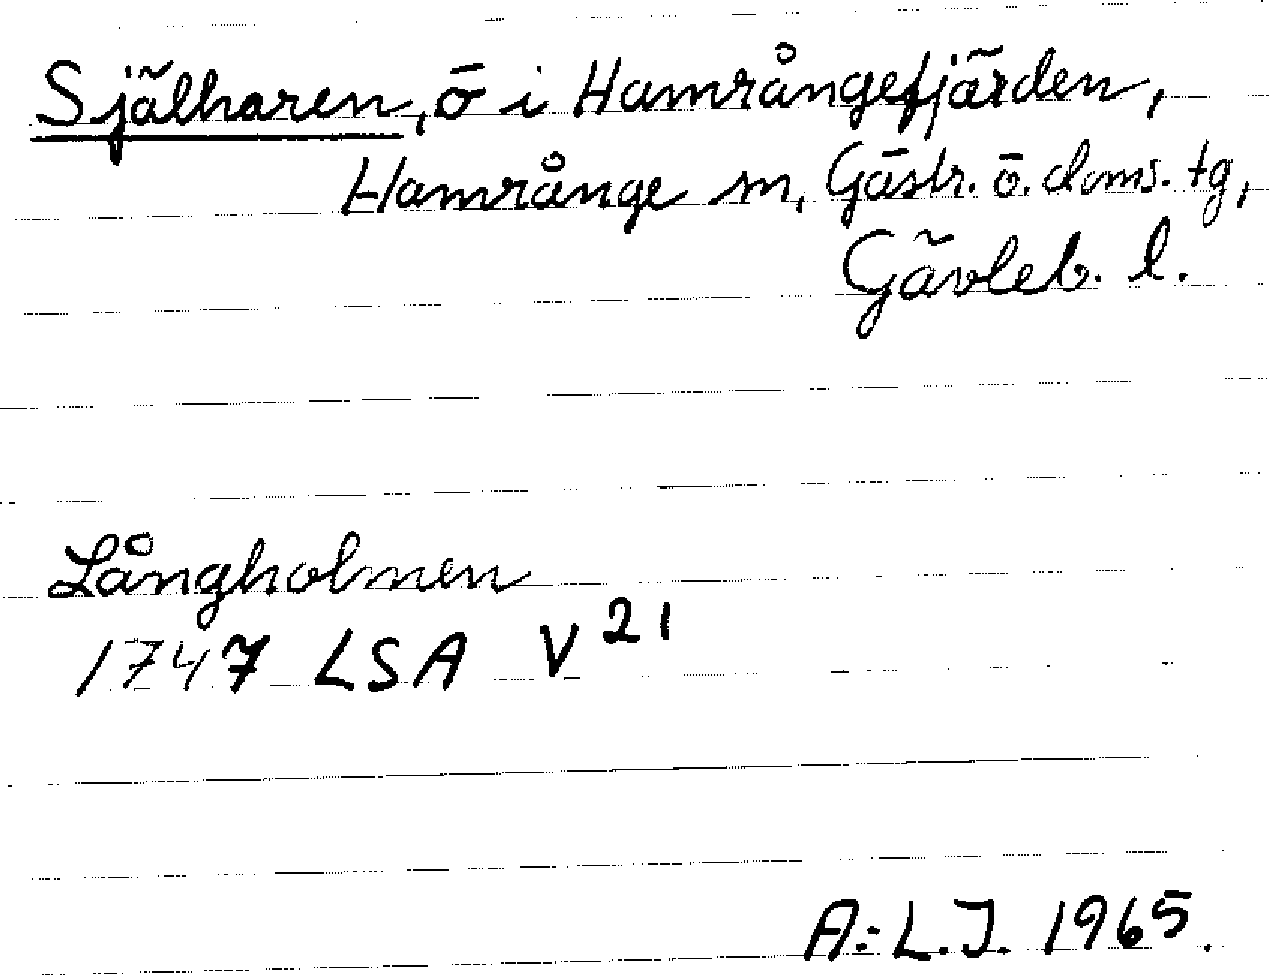 Själharen, ö i Hamrångefjärden,
Hamrånge sn, Gästr. ö. doms. tg,
Gävleb. l.
Långholmen
1747 LSA V 21
A.: L.J. 1965.